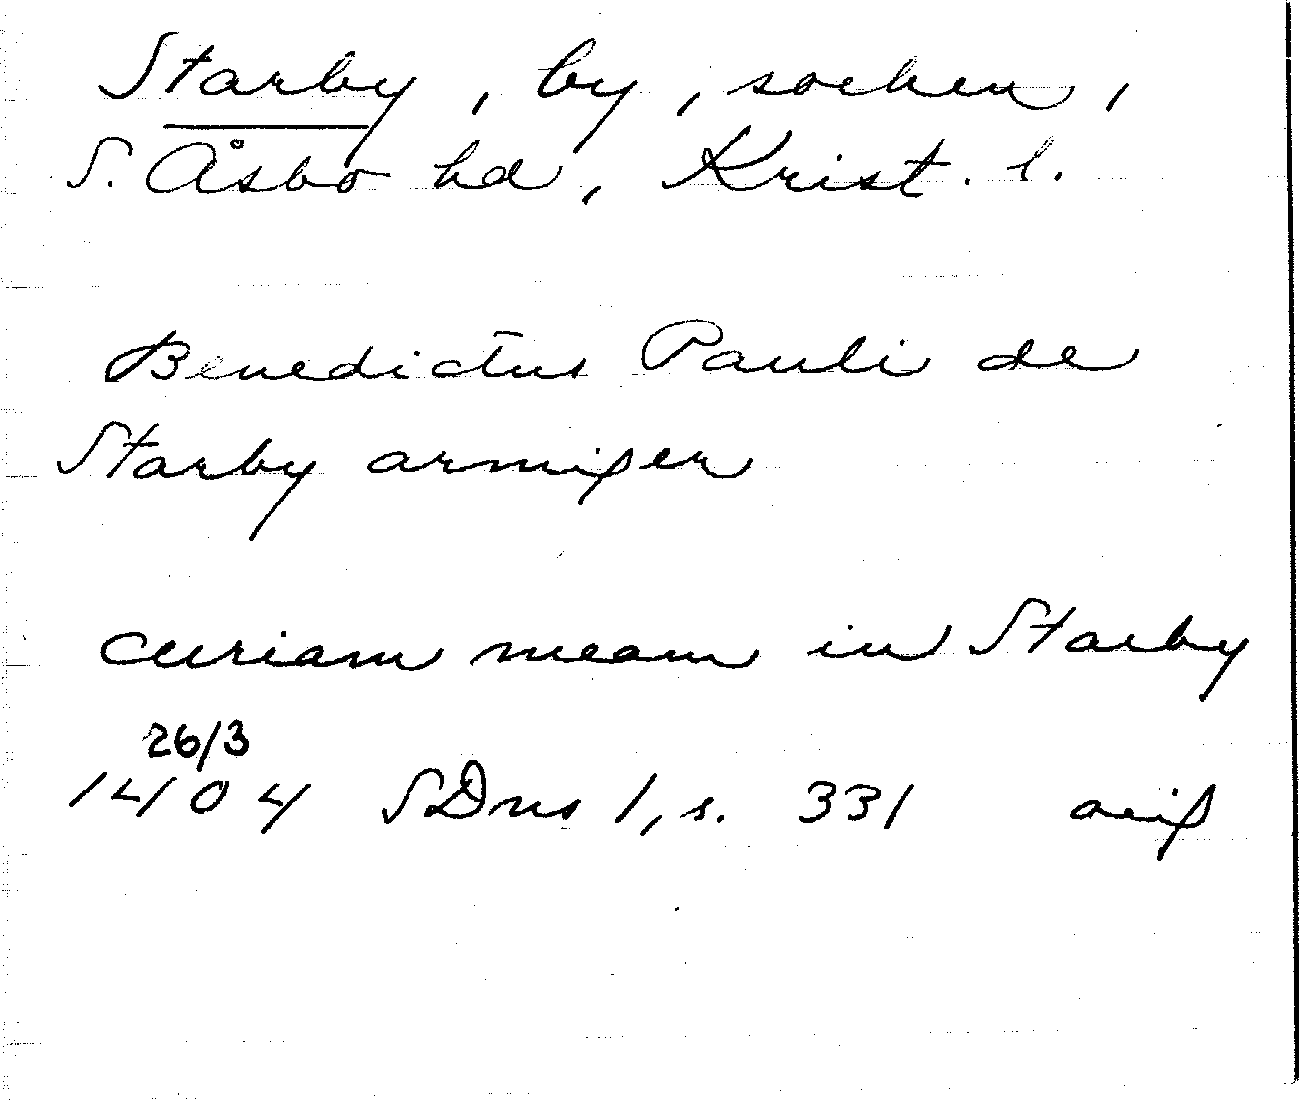 Starby, by, socken,
S. Åsbo hd, Krist. l.
Benedictus Pauli de
Starby armiger
curiam meam in Starby
26/3
1404 SDns 1, s. 331 orig